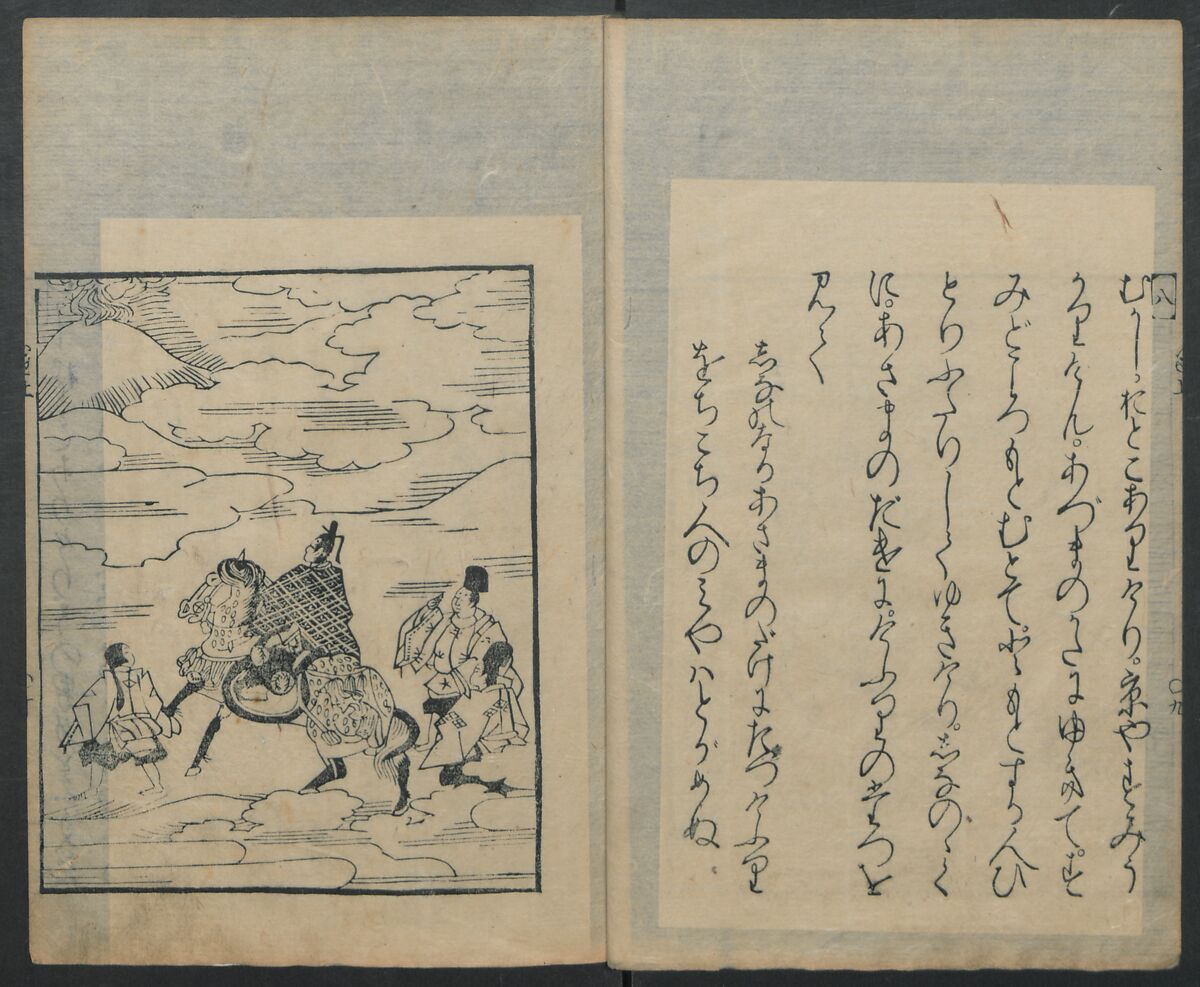 八
むかし。おとこありけり。京やすみう
かりけん。あづまのかたにゆきて。す
みどころもとむとて。ともとする人ひ
とりふたりしてゆきけり。しなのゝく
に。あさまのだけに。けふりのたつを
見て
しなのなるあさまのだけにたつけふり
をちこち人のみやはとがめぬ